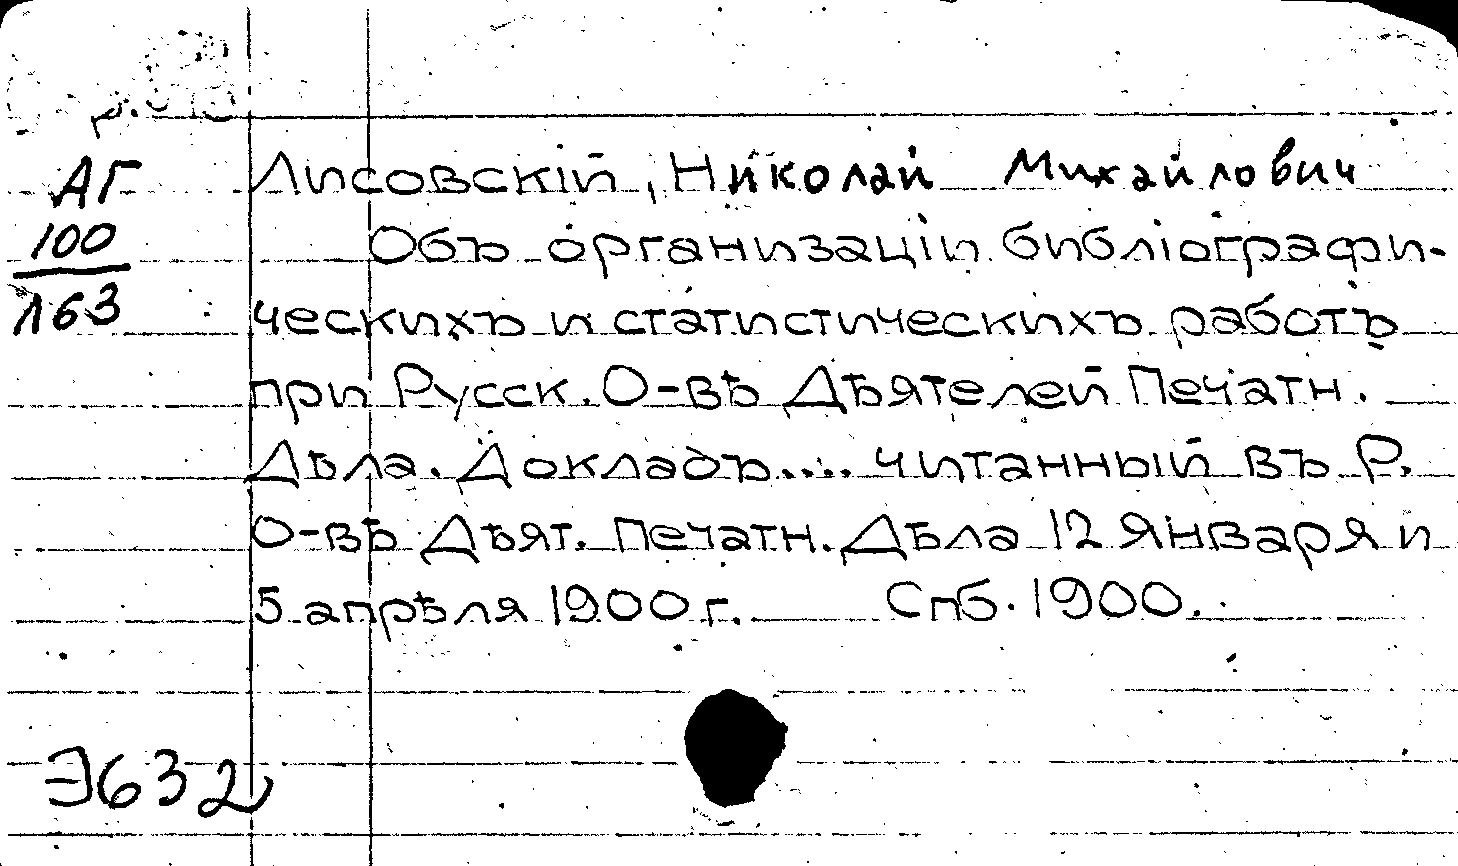 АГ
100
163
Лисовскій, Николай Михайлович
Объ организаціи библіографи-
ческихъ и статистическихъ работъ
при Русск. О-вѣ Дѣятелей Печатн.
Дѣла. Докладъ.... читанный въ Р.
О-вѣ Дѣят. Печатн. Дѣла 12 Января и
5 апрѣля 1900 г. Спб. 1900.
Э632